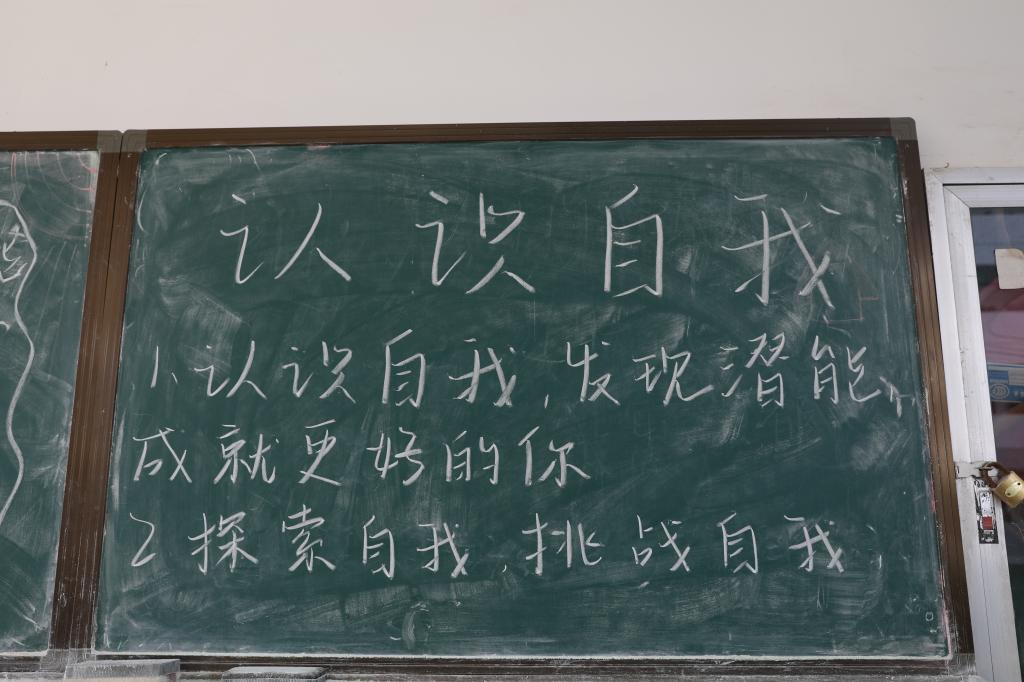 认识自我
1、认识自我,发现潜能,
成就更好的你
2 探索自我,挑战自我